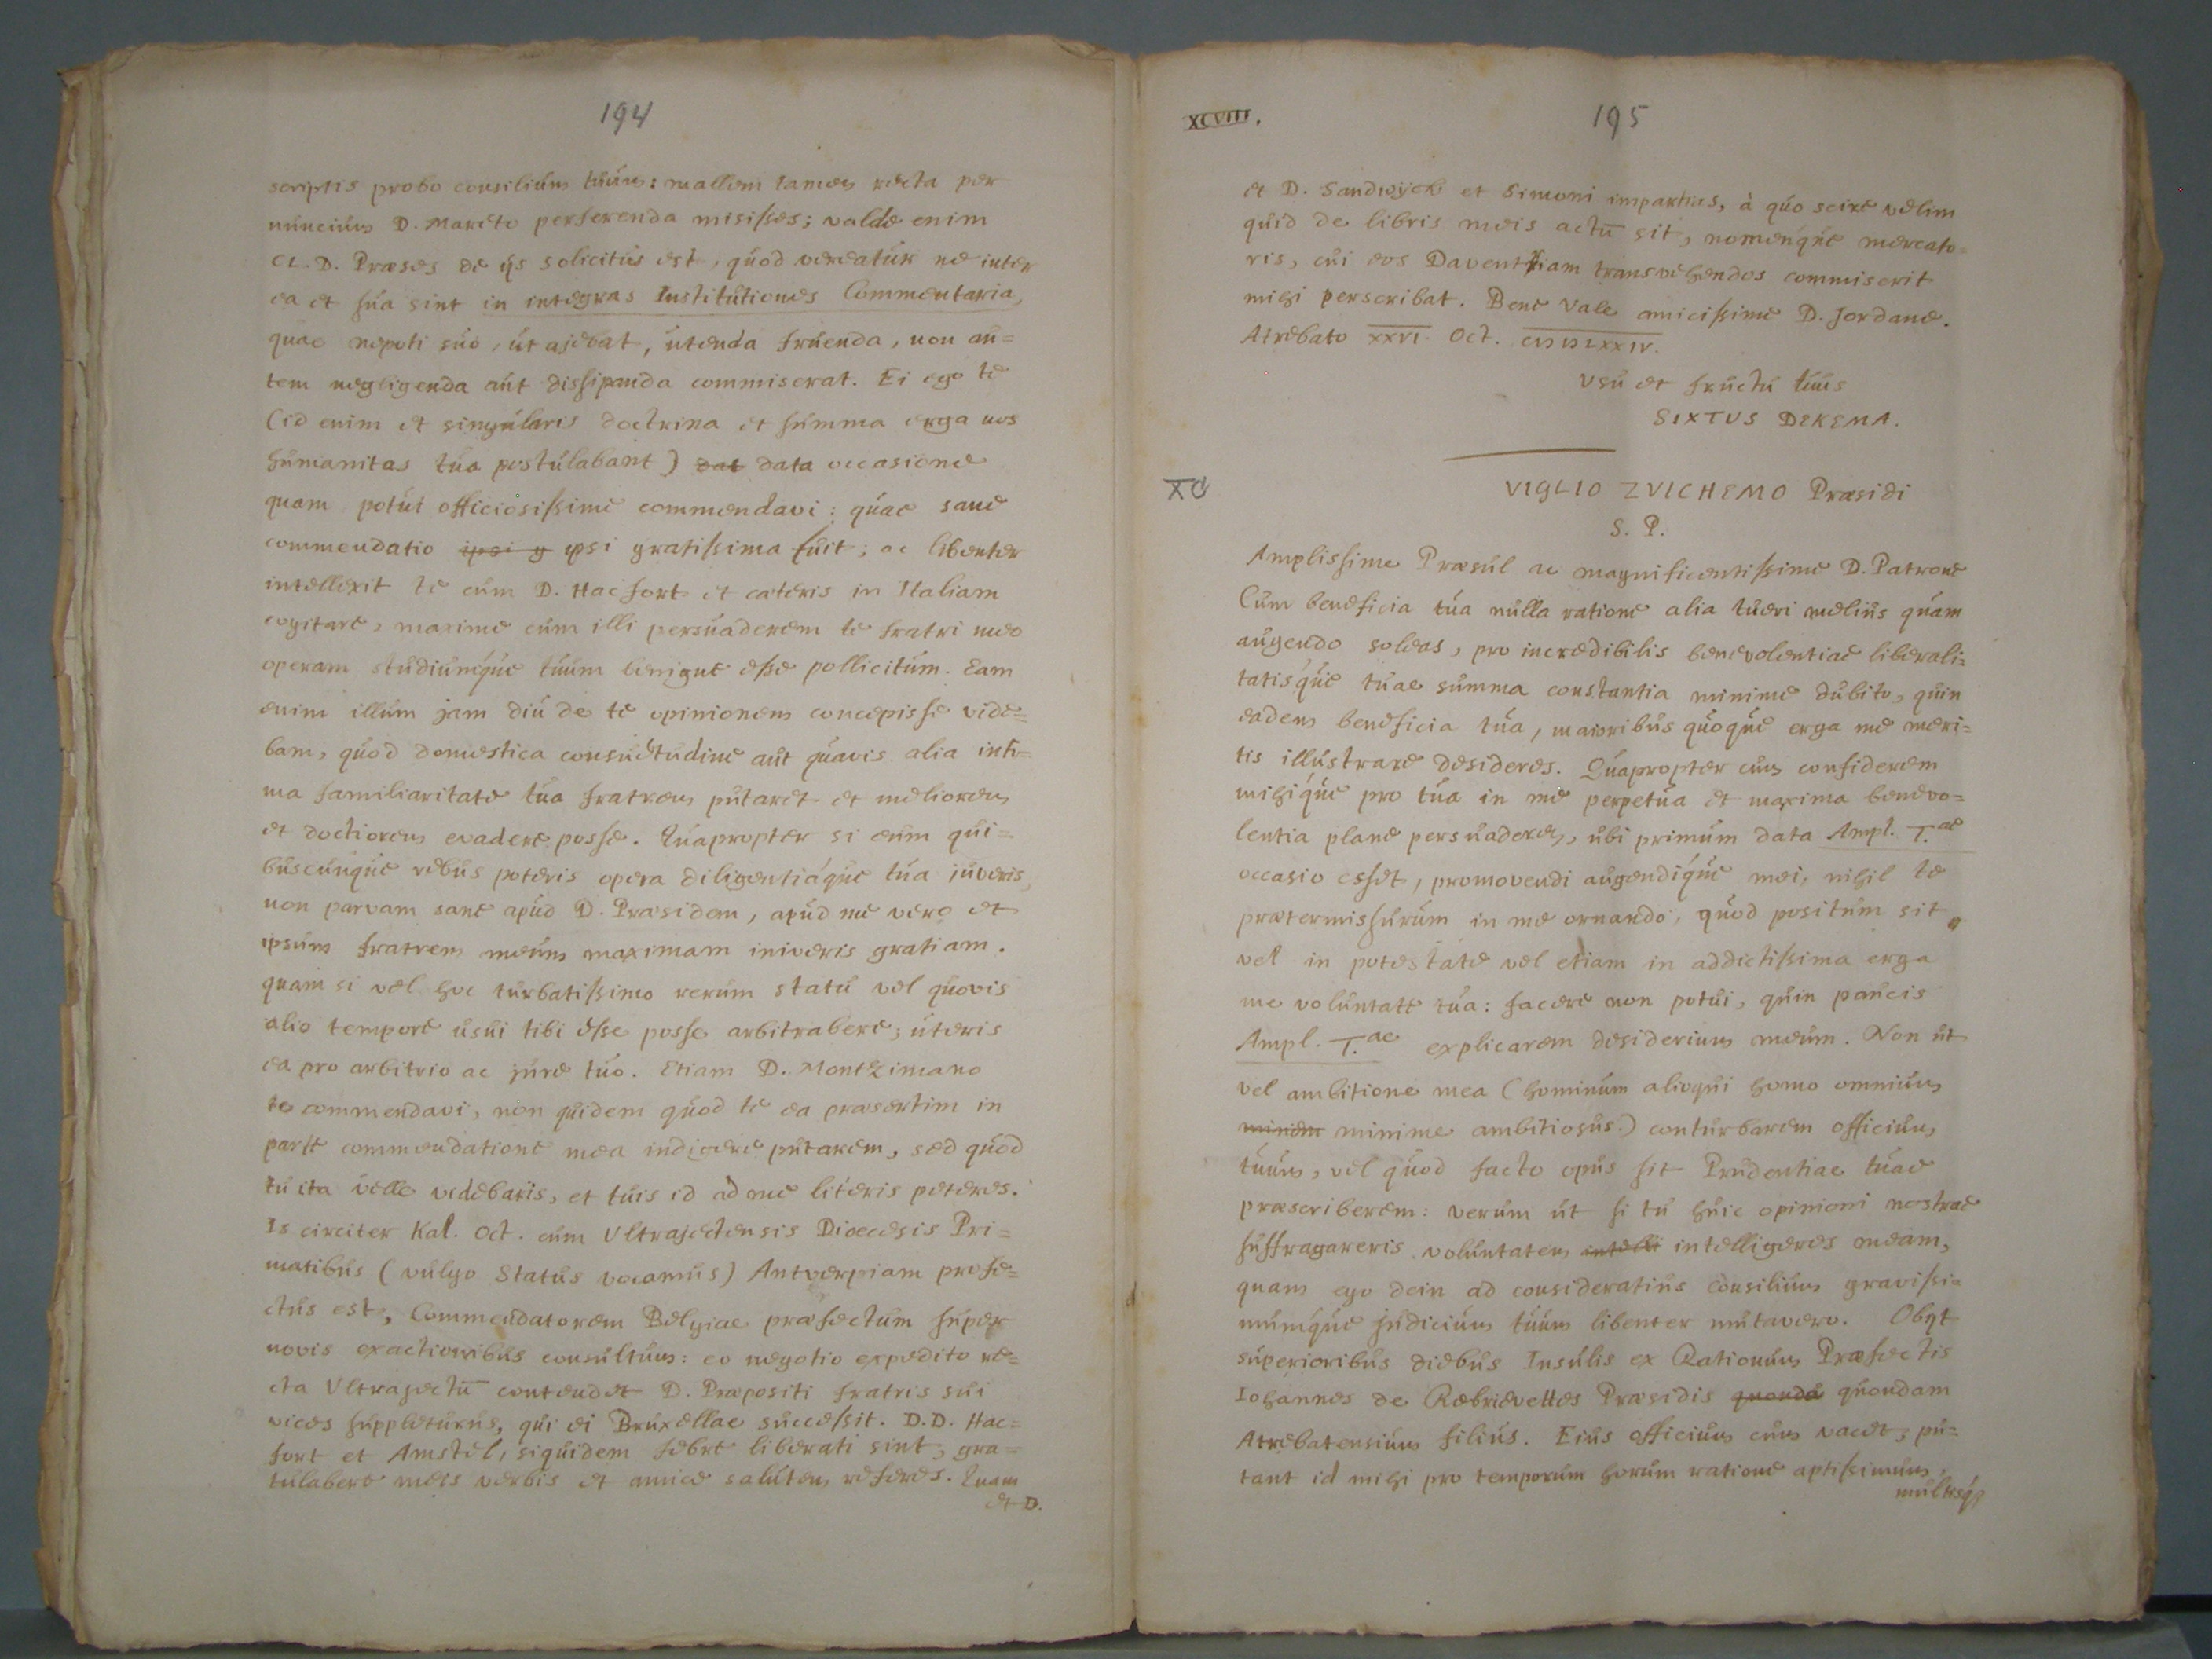 194
scriptis probo consilium tuum: mallem tamen recta per
nuncium D. Mareto perferenda misisses; valde enim
CL. D. Præses de ijs solicitus est, quod vereatur ne inter
ea et sua sint in integras Institutiones Commentaria,
quae nepoti suo, ut ajebat, utenda fruenda, non au=
tem negligenda aut dissipanda commiserat. Ei ego te
(id enim et singularis doctrina et summa erga nos
humanitas tua postulabant) dat data occasione
quam potui officiosissime commendavi: quae sane
commendatio ipsi g ipsi gratissima fuit; ac libenter
intellexit te cum D. Hacfort et cæteris in Italiam
cogitare, maxime cum illi persuaderem te fratri meo
operam studiumque tuum benigne esse pollicitum. Eam
enim illum jam diu de te opinionem concepisse vide=
bam, quod domestica consuetudine aut quavis alia inti=
ma familiaritate tua fratrem putaret et meliorem
et doctiorem evadere posse. Quapropter si eum qui=
buscunque rebus poteris opera diligentiáque tua juveris,
non parvam sane apud D. Præsidem, apud me vero et
ipsum fratrem meum maximam iniveris gratiam.
quam si vel hoc turbatissimo rerum statu vel quovis
alio tempore usui tibi esse posse arbitrabere; uteris
ea pro arbitrio ac jure tuo. Etiam D. Montzimano
te commendavi, non quidem quod te ea præsertim in
parte commendatione mea indigere putarem, sed quod
tu ita velle videbaris, et tuis id ad me literis peteres.
Is circiter Kal. Oct. cum Ultrajectensis Dioecesis Pri=
matibus (vulgo Status vocamus) Antverpiam profe=
ctus est, Commendatorem Belgiae præfectum super
novis exactionibus consultum: eo negotio expedito re=
cta Ultrajectū contendet D. Præpositi fratris sui
vices suppleturus, qui ei Bruxellae successit. D.D. Hac=
fort et Amstel, siquidem febre liberati sint, gra=
tulabere meis verbis et amice salutem referes. Quam
et D.
XCVIII.
195
et D. Sandwijch et Simoni impartias, à quo scire velim
quid de libris meis actū sit, nomenque mercato=
ris, cui eos Daventriam transvehendos commiserit
mihi perscribat. Bene Vale amicissime D. Jordane.
Atrebato XXVI. Oct. CIↃ IↃ LXXIV.
Usu et fructu tuus
SIXTUS DEKEMA.
XC
VIGLIO ZVICHEMO Præsidi
S. P.
Amplissime Præsul ac magnificentissime D. Patrone
Cum beneficia tua nulla ratione alia tueri melius quam
augendo soleas, pro incredibilis benevolentiae liberali=
tatisque tuae summa constantia minime dubito, quin
eadem beneficia tua, maioribus quoque erga me meri=
tis illustrare desideres. Quapropter cum confiderem
mihique pro tua in me perpetua et maxima benevo=
lentia plane persuaderem, ubi primum data Ampl. T.ae
occasio esset, promovendi augendique mei, nihil te
prætermissurum in me ornando, quod positum sit
vel in potestate vel etiam in addictissima erga
me voluntate tua: facere non potui, quin paucis
Ampl. T.ae explicarem desiderium meum. Non ut
vel ambitione mea (hominum alioqui homo omnium
minim minime ambitiosus) conturbarem officium
tuum, vel quod facto opus sit Prudentiae tuae
præscriberem: verum ut si tu huic opinioni nostrae
suffragareris voluntatem intelli intelligeres meam,
quam ego dein ad consideratius consilium gravissi=
mumque judicium tuum libenter mutavero. Obijt
superioribus diebus Insulis ex Rationum Præfectis
Iohannes de Rebrievettes Præsidis quondā quondam
Atrebatensium filius. Eius officium cum vacet, pu=
tant id mihi pro temporum horum ratione aptissimum,
multisq;